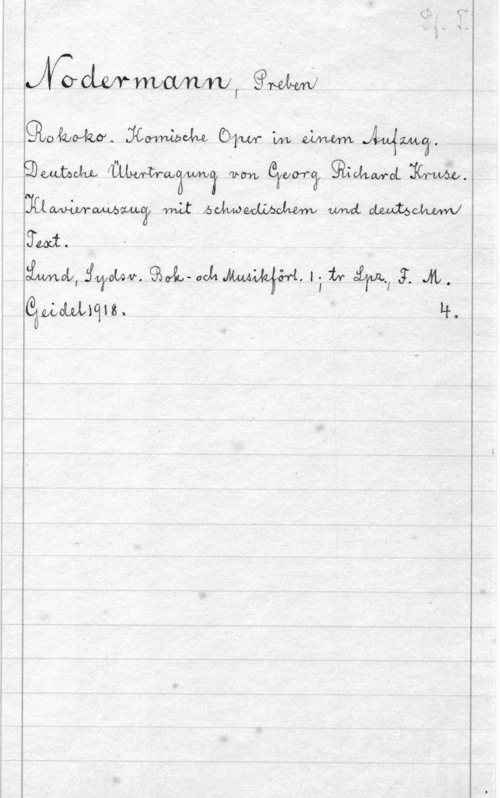 Pf. T.
Nodermann, Preben
Rokoko. Komische Oper in einem Aufzug.
Deutsche Übertragung von Georg Richard Kruse.
Klavierauszug mit schwedischem und deutschem
Text.
Lund, Sydsv. Bok- och Musikförl. 1; tr Lpz., F. M.
Geidel 1918. 4.